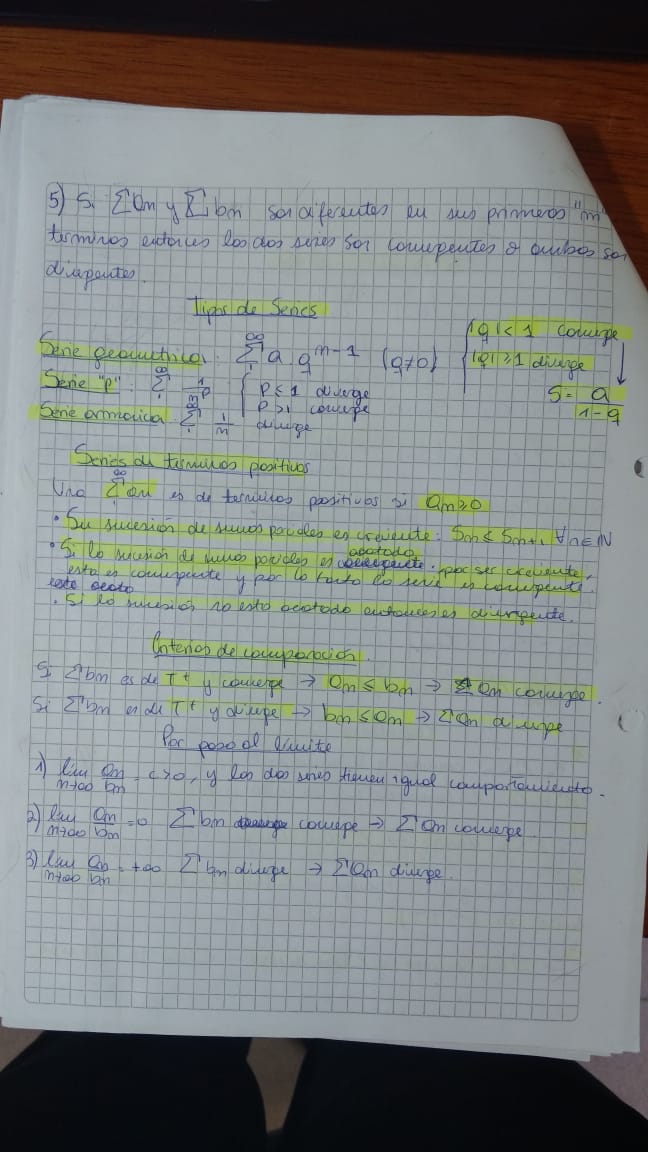 5) Si ∑an y ∑bn son diferentes en sus primeros "m"
terminos entonces las dos series son convergentes o ambas son
divergentes.
Tipos de Series
Serie geometrica: ∑₁^∞ a q^(n-1) (q≠0) { |q| < 1 converge
|q| ≥ 1 diverge
S = a/(1-q)
Serie "p": ∑₁^∞ 1/n^p { p ≤ 1 diverge
p > 1 converge
Serie armonica ∑₁^∞ 1/n diverge
Series de terminos positivos
Una ∑₁^∞ an es de terminos positivos si an≥0
• Su sucesión de sumas parciales es creciente: Sn ≤ Sn+1, ∀n∈N
• Si la sucesión de sumas parciales es acotada, por ser creciente,
esta es convergente y por lo tanto la serie es convergente.
• Si la sucesión no esta acotada entonces es divergente.
Criterios de comparación.
Si ∑bn es de T⁺ y converge → an ≤ bn → ∑an converge.
Si ∑bn es de T⁺ y diverge → bn ≤ an → ∑an diverge
Por paso al limite
1) lim n→∞ an/bn = c>0, y las dos series tienen igual comportamiento.
2) lim n→∞ an/bn = 0 ∑bn converge → ∑an converge
3) lim n→∞ an/bn = +∞ ∑bn diverge → ∑an diverge.